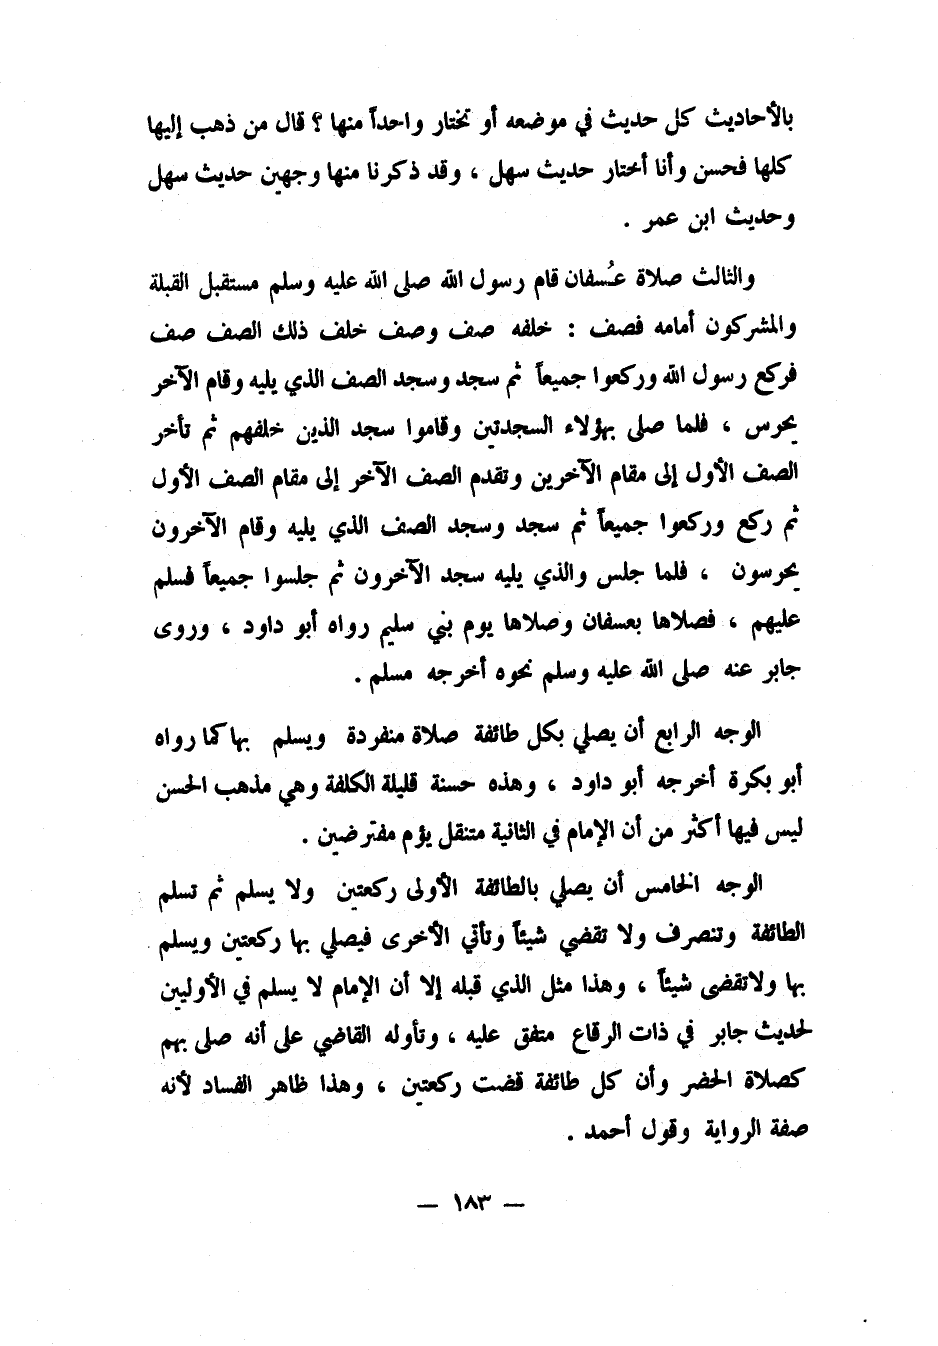 بالأحاديث كل حديث في موضعه أو تختار واحداً منها ؟ قال من ذهب إليها
كلها فحسن وأنا أختار حديث سهل ، وقد ذكرنا منها وجهين حديث سهل
وحديث ابن عمر .
والثالث صلاة عُسفان قام رسول الله صلى الله عليه وسلم مستقبل القبلة
والمشركون أمامه فصف : خلفه صف وصف خلف ذلك الصف صف
فركع رسول الله وركعوا جميعاً ثم سجد وسجد الصف الذي يليه وقام الآخر
يحرس ، فلما صلى بهؤلاء السجدتين وقاموا سجد الذين خلفهم ثم تأخر
الصف الأول إلى مقام الآخرين وتقدم الصف الآخر إلى مقام الصف الأول
ثم ركع وركعوا جميعاً ثم سجد وسجد الصف الذي يليه وقام الآخرون
يحرسون ، فلما جلس والذي يليه سجد الآخرون ثم جلسوا جميعاً فسلم
عليهم ، فصلاها بعسفان وصلاها يوم بني سليم رواه أبو داود ، وروى
جابر عنه صلى الله عليه وسلم نحوه أخرجه مسلم .
الوجه الرابع أن يصلي بكل طائفة صلاة منفردة ويسلم بها كما رواه
أبو بكرة أخرجه أبو داود ، وهذه حسنة قليلة الكلفة وهي مذهب الحسن
ليس فيها أكثر من أن الإمام في الثانية متنقل يؤم مفترضين .
الوجه الخامس أن يصلي بالطائفة الأولى ركعتين ولا يسلم ثم تسلم
الطائفة وتنصرف ولا تقضي شيئاً وتأتي الأخرى فيصلي بها ركعتين ويسلم
بها ولاتقضى شيئاً ، وهذا مثل الذي قبله إلا أن الإمام لا يسلم في الأوليين
لحديث جابر في ذات الرقاع متفق عليه ، وتأوله القاضي على أنه صلى بهم
كصلاة الحضر وأن كل طائفة قضت ركعتين ، وهذا ظاهر الفساد لأنه
صفة الرواية وقول أحمد .
— ١٨٣ —